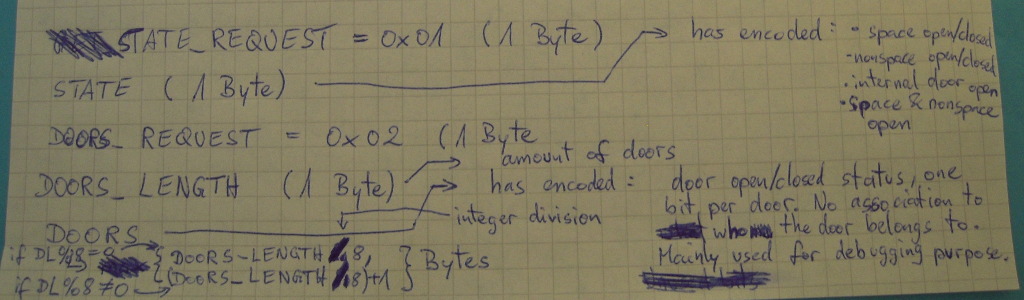 STATE_REQUEST = 0x01 (1 Byte)
STATE (1 Byte)
has encoded: • space open/closed
- nonspace open/closed
• internal door open
• space & nonspace
open
DOORS_REQUEST = 0x02 (1 Byte
DOORS_LENGTH (1 Byte)
amount of doors
DOORS
has encoded: door open/closed status, one
bit per door. No association to
whom the door belongs to.
Mainly used for debugging purpose.
integer division
if DL%8=0 { DOORS_LENGTH / 8, } Bytes
if DL%8≠0 (DOORS_LENGTH / 8)+1